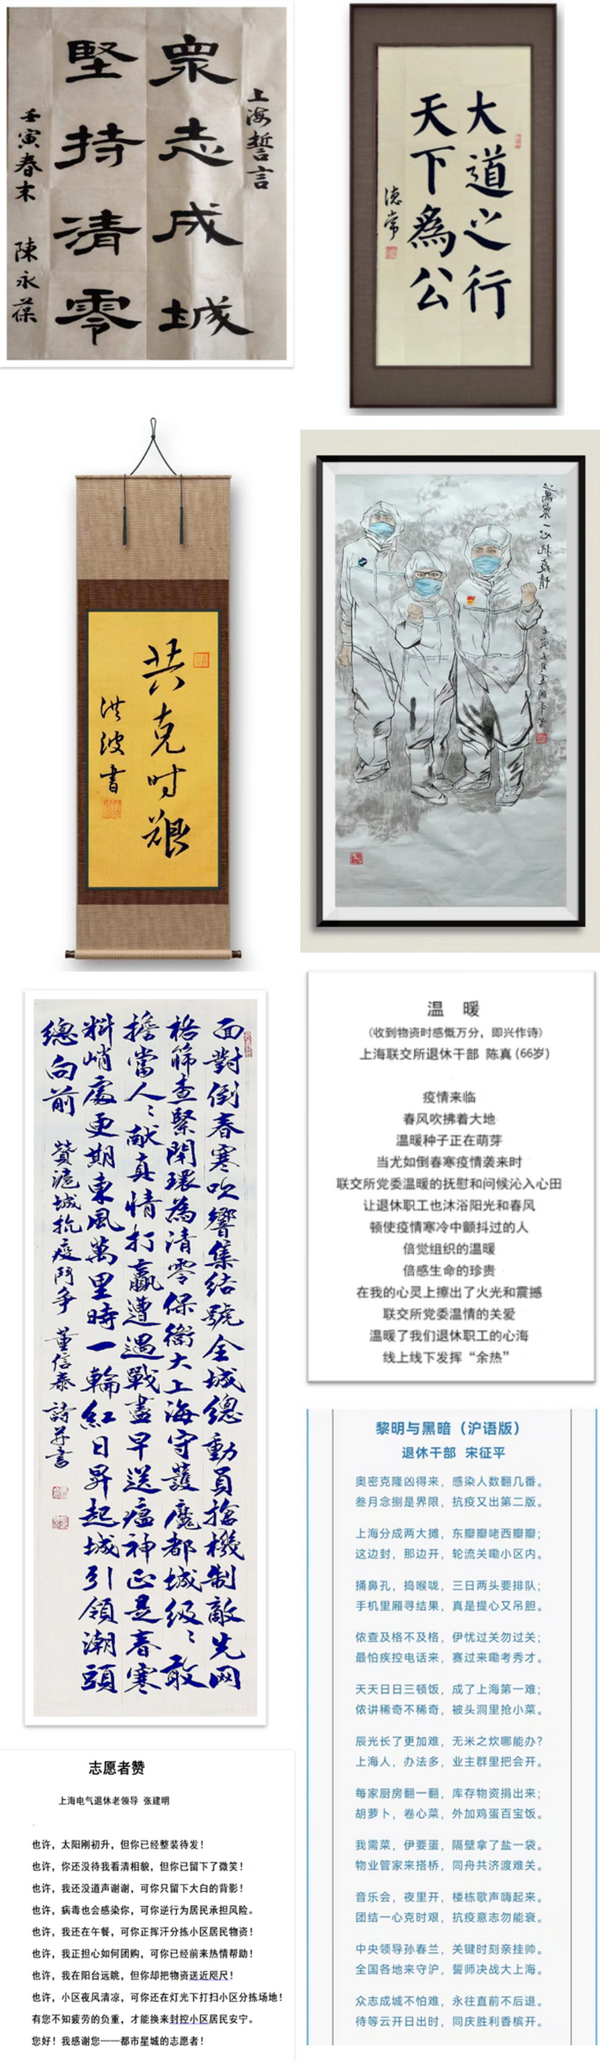 上海誓言
眾志成城
堅持清零
壬寅春末 陳永葆
大道之行
天下為公
德常
共克时艰
洪波书
萬众一心抗疫情
面對倒春寒吹響集結號全城總動員搶機制敵先网
格篩查緊閉環為清零保衛大上海守護魔都城級〻敢
擔當人〻献真情打贏遭遇戰盡早送瘟神正是春寒
料峭處更期東風萬里時一輪紅日昇起城引領潮頭
總向前
贊滬城抗疫鬥爭 董信泰詩并書
温 暖
(收到物资时感慨万分，即兴作诗)
上海联交所退休干部 陈真(66岁)
疫情来临
春风吹拂着大地
温暖种子正在萌芽
当尤如倒春寒疫情袭来时
联交所党委温暖的抚慰和问候沁入心田
让退休职工也沐浴阳光和春风
顿使疫情寒冷中颤抖过的人
倍觉组织的温暖
倍感生命的珍贵
在我的心灵上擦出了火光和震撼
联交所党委温情的关爱
温暖了我们退休职工的心海
线上线下发挥“余热”
黎明与黑暗（沪语版）
退休干部 宋征平
奥密克隆凶得来，感染人数翻几番。
叁月念捌是界限，抗疫又出第二版。
上海分成两大摊，东瓣瓣咾西瓣瓣；
这边封，那边开，轮流关嘞小区内。
捅鼻孔，捣喉咙，三日两头要排队；
手机里厢寻结果，真是提心又吊胆。
侬查及格不及格，伊忧过关勿过关；
最怕疾控电话来，赛过来嘞考秀才。
天天日日三顿饭，成了上海第一难；
侬讲稀奇不稀奇，被头洞里抢小菜。
辰光长了更加难，无米之炊哪能办？
上海人，办法多，业主群里把会开。
每家厨房翻一翻，库存物资捐出来；
胡萝卜，卷心菜，外加鸡蛋百宝饭。
我需菜，伊要蛋，隔壁拿了盐一袋。
物业管家来搭桥，同舟共济渡难关。
音乐会，夜里开，楼栋歌声嗨起来。
团结一心克时艰，抗疫意志勿能衰。
中央领导孙春兰，关键时刻亲挂帅。
全国各地来守沪，誓师决战大上海。
众志成城不怕难，永往直前不后退。
待等云开日出时，同庆胜利香槟开。
志愿者赞
上海电气退休老领导 张建明
也许，太阳刚初升，但你已经整装待发！
也许，你还没待我看清相貌，但你已留下了微笑！
也许，我还没道声谢谢，可你只留下大白的背影！
也许，病毒也会感染你，可你逆行为居民承担风险。
也许，我还在午餐，可你正挥汗分拣小区居民物资！
也许，我正担心如何团购，可你已经前来热情帮助！
也许，我在阳台远眺，但你却把物资送近咫尺！
也许，小区夜风清凉，可你还在灯光下打扫小区分拣场地！
有您不知疲劳的负重，才能换来封控小区居民安宁。
您好！我感谢您——都市星城的志愿者！